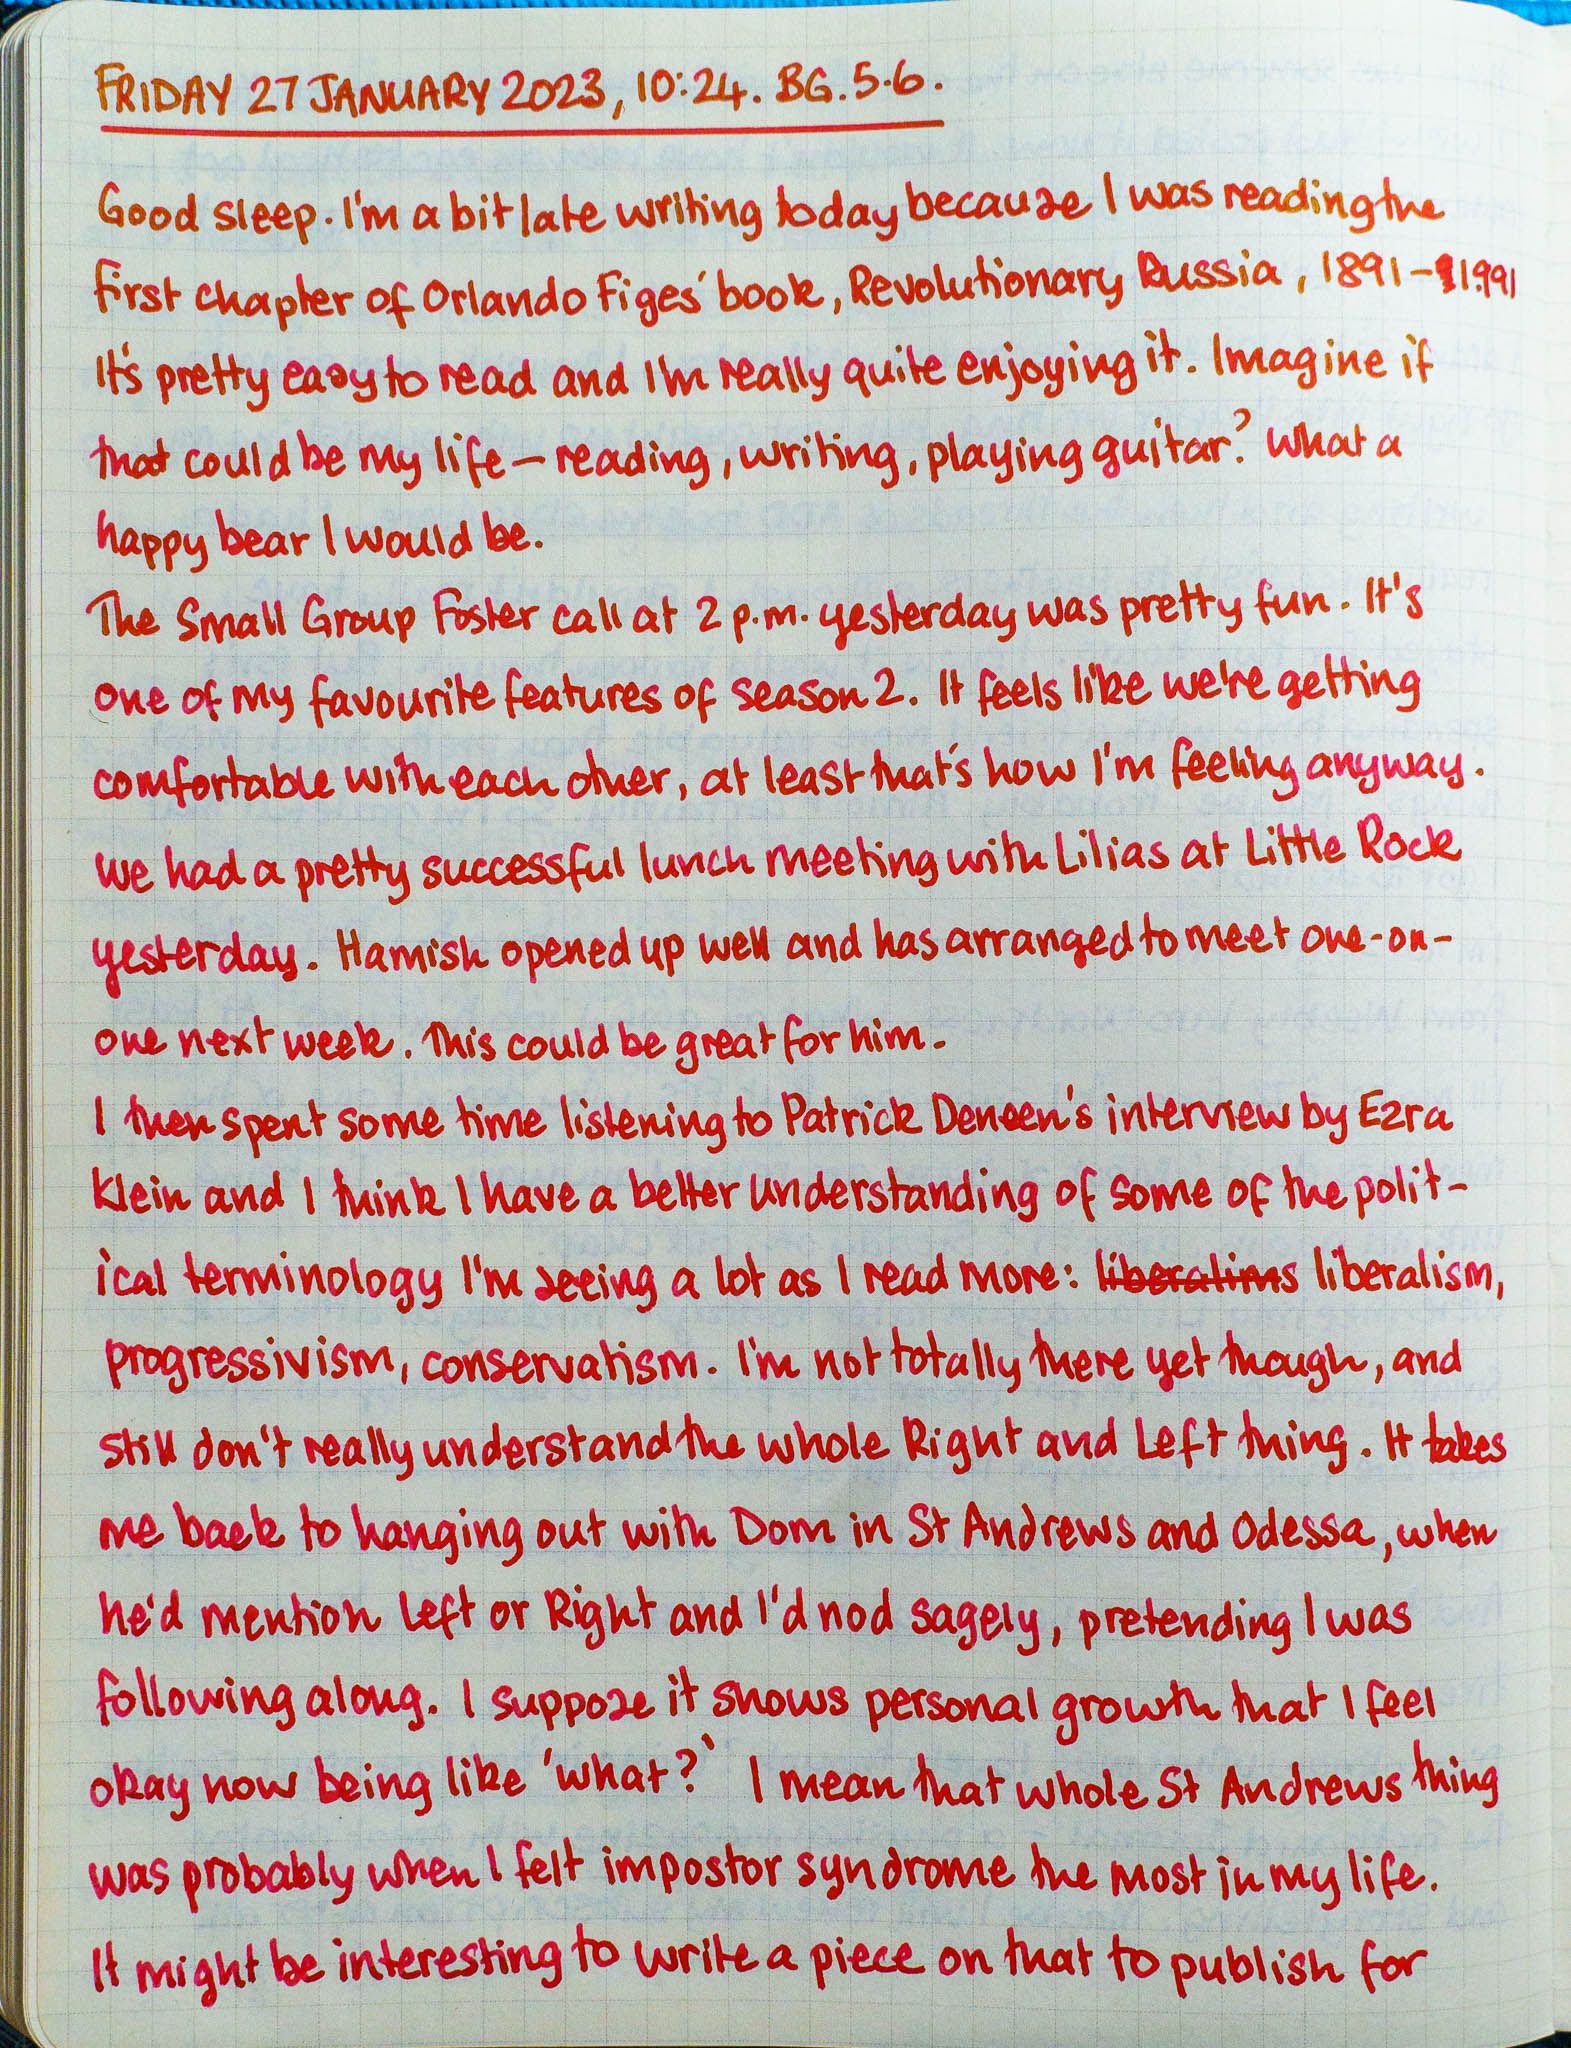 FRIDAY 27 JANUARY 2023, 10:24. BG. 5.6.
Good sleep. I'm a bit late writing today because I was reading the
first chapter of Orlando Figes' book, Revolutionary Russia, 1891-1991
It's pretty easy to read and I'm really quite enjoying it. Imagine if
that could be my life – reading, writing, playing guitar? What a
happy bear I would be.
The Small Group Foster call at 2 p.m. yesterday was pretty fun. It's
one of my favourite features of season 2. It feels like we're getting
comfortable with each other, at least that's how I'm feeling anyway.
We had a pretty successful lunch meeting with Lilias at Little Rock
yesterday. Hamish opened up well and has arranged to meet one-on-
one next week. This could be great for him.
I then spent some time listening to Patrick Deneen's interview by Ezra
Klein and I think I have a better understanding of some of the polit-
ical terminology I'm seeing a lot as I read more: liberalims liberalism,
progressivism, conservatism. I'm not totally there yet though, and
still don't really understand the whole Right and Left thing. It takes
me back to hanging out with Dom in St Andrews and Odessa, when
he'd mention Left or Right and I'd nod sagely, pretending I was
following along. I suppose it shows personal growth that I feel
okay now being like 'what?' I mean that whole St Andrews thing
was probably when I felt impostor syndrome the most in my life.
It might be interesting to write a piece on that to publish for